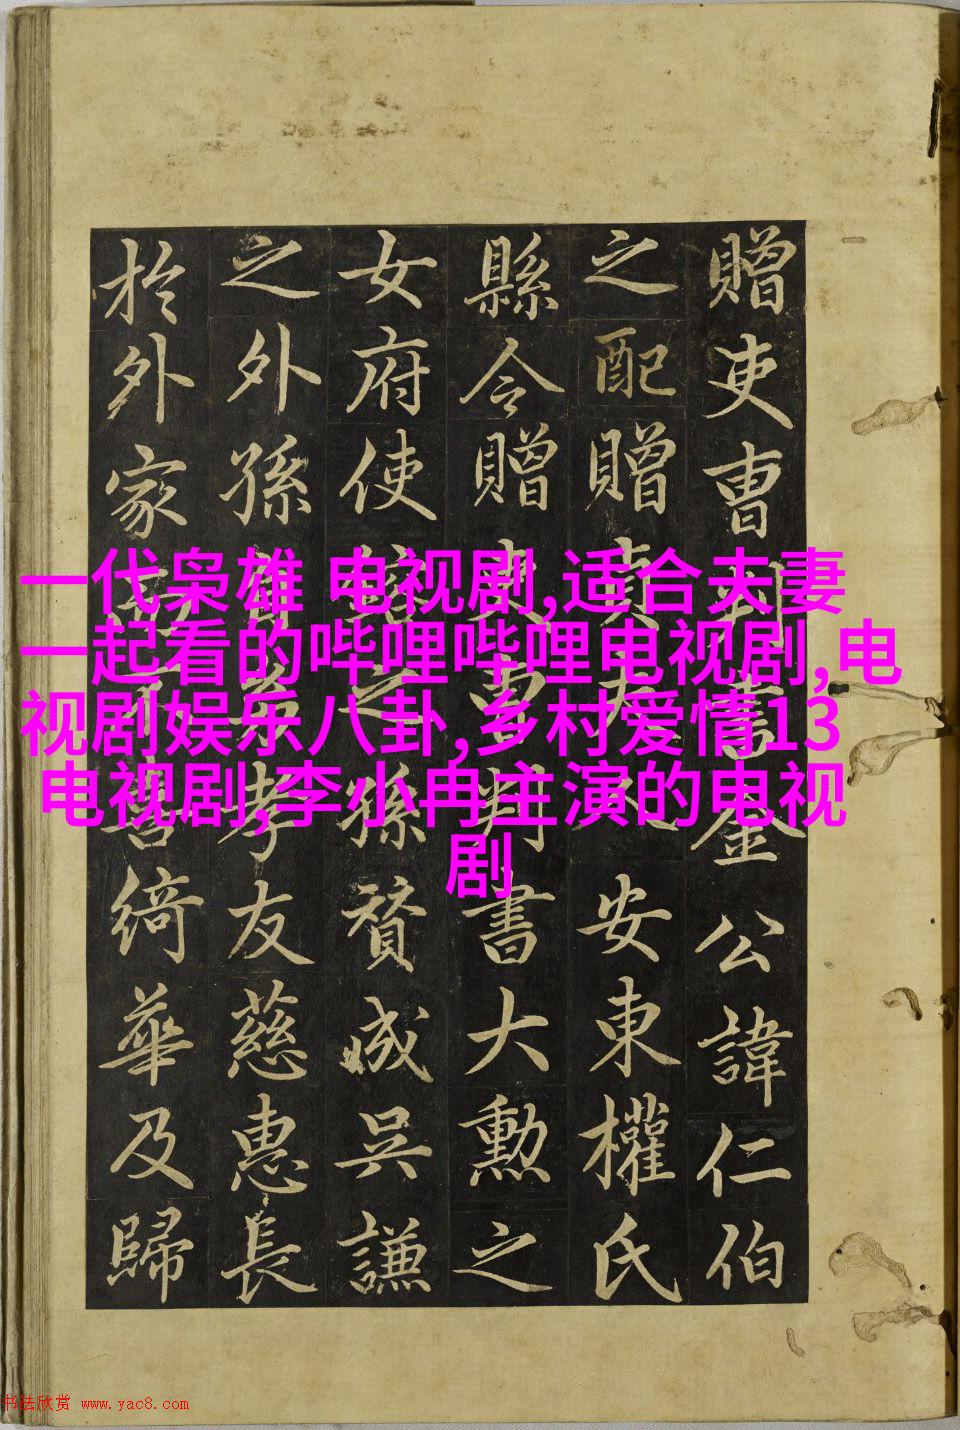 贈吏曹判書金公諱仁伯
之配贈貞夫人安東權氏
縣令贈吏曹判書大勳之
女府使之孫賛成吳謙
之外孫孝友慈惠長
於外家綺華及歸
一代枭雄 电视剧,适合夫妻
一起看的哔哩哔哩电视剧,电
视剧娱乐八卦,乡村爱情13
电视剧,李小冉主演的电视
剧
书法欣赏 www.yac8.com